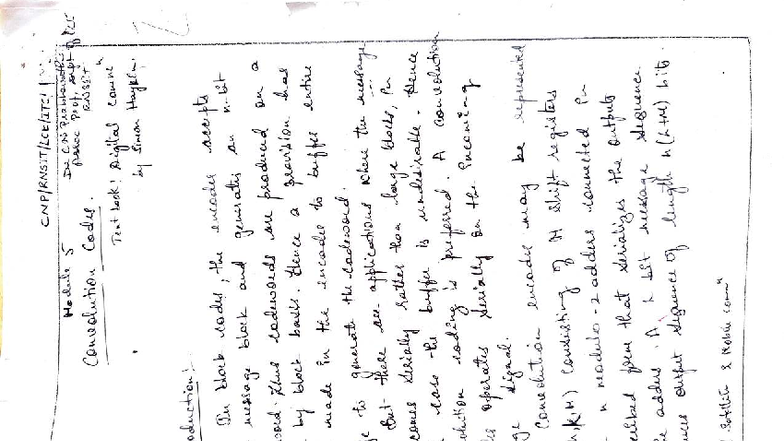 CNP/RNSIT/ECE/ITC/
Dr. C N Prabhavathi
Assoc Prof, Dept of ECE
RNSIT
Module 5
Convolution Codes.
Text book: Digital Commn
by Simon Haykin.
oduction:-
In block codes, the encoder accepts
message block and generates an n-bit
word. Thus codewords are produced on a
by block basis. Hence a provision has
made in the encoder to buffer entire
ge to generate the codeword.
But there are applications where the message
comes serially rather than large blocks, in
case the buffer is undesirable. Hence
lution coding is preferred. A convolution
operates serially on the incoming
ge signal.
Convolution encoder may be represented
consisting of M shift registers
n modulo-2 adders connected in
form that serializes the outputs
e adder. A bit message sequence
output sequence of length n(L+M) bits.
Satellite & Mobile commn